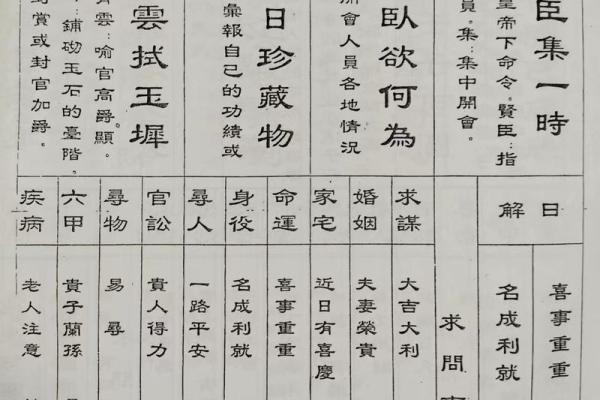 臣集一時
皇帝下命令。賢臣：指
員。集：集中開會。
臥欲何為
會人員各地情況
日珍藏物
彙報自己的功績或
雲拭玉墀
雲：喻官高爵顯。
：鋪砌玉石的臺階。
封賞或封官加爵。
日解
喜事重重
名成利就
求問
求謀
大吉大利
婚姻
夫妻榮貴
家宅
近日有喜慶
命運
喜事重重
身役
名成利就
尋人
一路平安
官訟
貴人得力
尋物
易尋
六甲
貴子蘭孫
疾病
老人注意